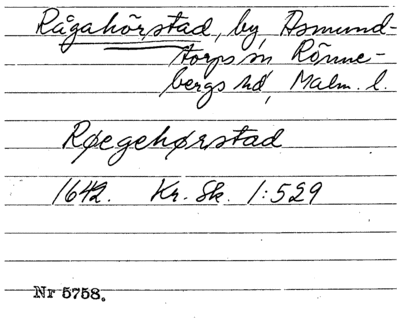 Rågahörstad, by, Asmund-
torps sn Rönne-
bergs hd, Malm. l.
Røegehørstad
1642. Kr. Sk. 1:529
Nr 5758.